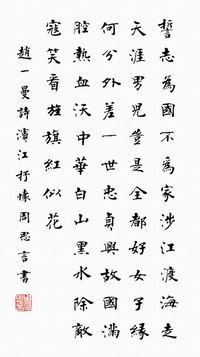 誓志為國不為家涉江渡海走
天涯男兒豈是全都好女子緣
何分外差一世忠貞興故國滿
腔熱血沃中華白山黑水除敵
寇笑看旌旗紅似花
趙一曼詩濱江抒懷周言書